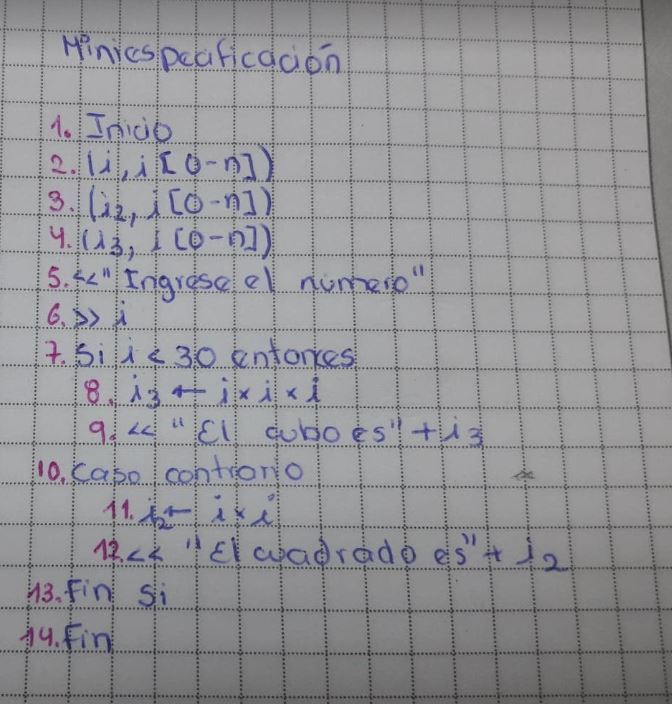 Miniespecificación
1. Inicio
2. (i, i [0-n])
3. (i2, i [0-n])
4. (i3, i [0-n])
5. << "Ingrese el número"
6. >> i
7. Si i < 30 entonces
8. i3 ← i x i x i
9. << "El cubo es" + i3
10. Caso contrario
11. i2 ← i x i
12. << "El cuadrado es" + i2
13. Fin si
14. Fin